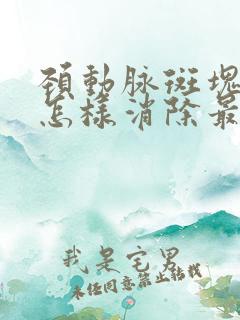 頚動脉斑塊
怎樣消除最
我是宅男
未经同意禁止转载